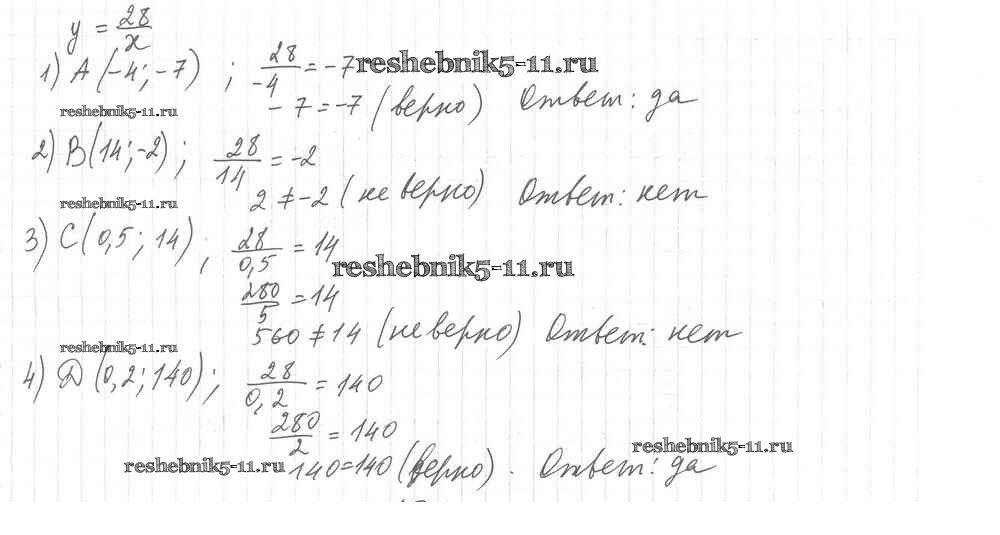 y = 28/x
1) A (-4; -7) ; 28/-4 = -7 reshebnik5-11.ru
reshebnik5-11.ru -7 = -7 (верно) Ответ: да
2) B(14; -2) ; 28/14 = -2
reshebnik5-11.ru 2 ≠ -2 (не верно) Ответ: нет
3) C(0,5; 14) ; 28/0,5 = 14
reshebnik5-11.ru
280/5 = 14
560 ≠ 14 (не верно) Ответ: нет
reshebnik5-11.ru
4) D (0,2; 140) ; 28/0,2 = 140
280/2 = 140
reshebnik5-11.ru
reshebnik5-11.ru 140 = 140 (верно). Ответ: да